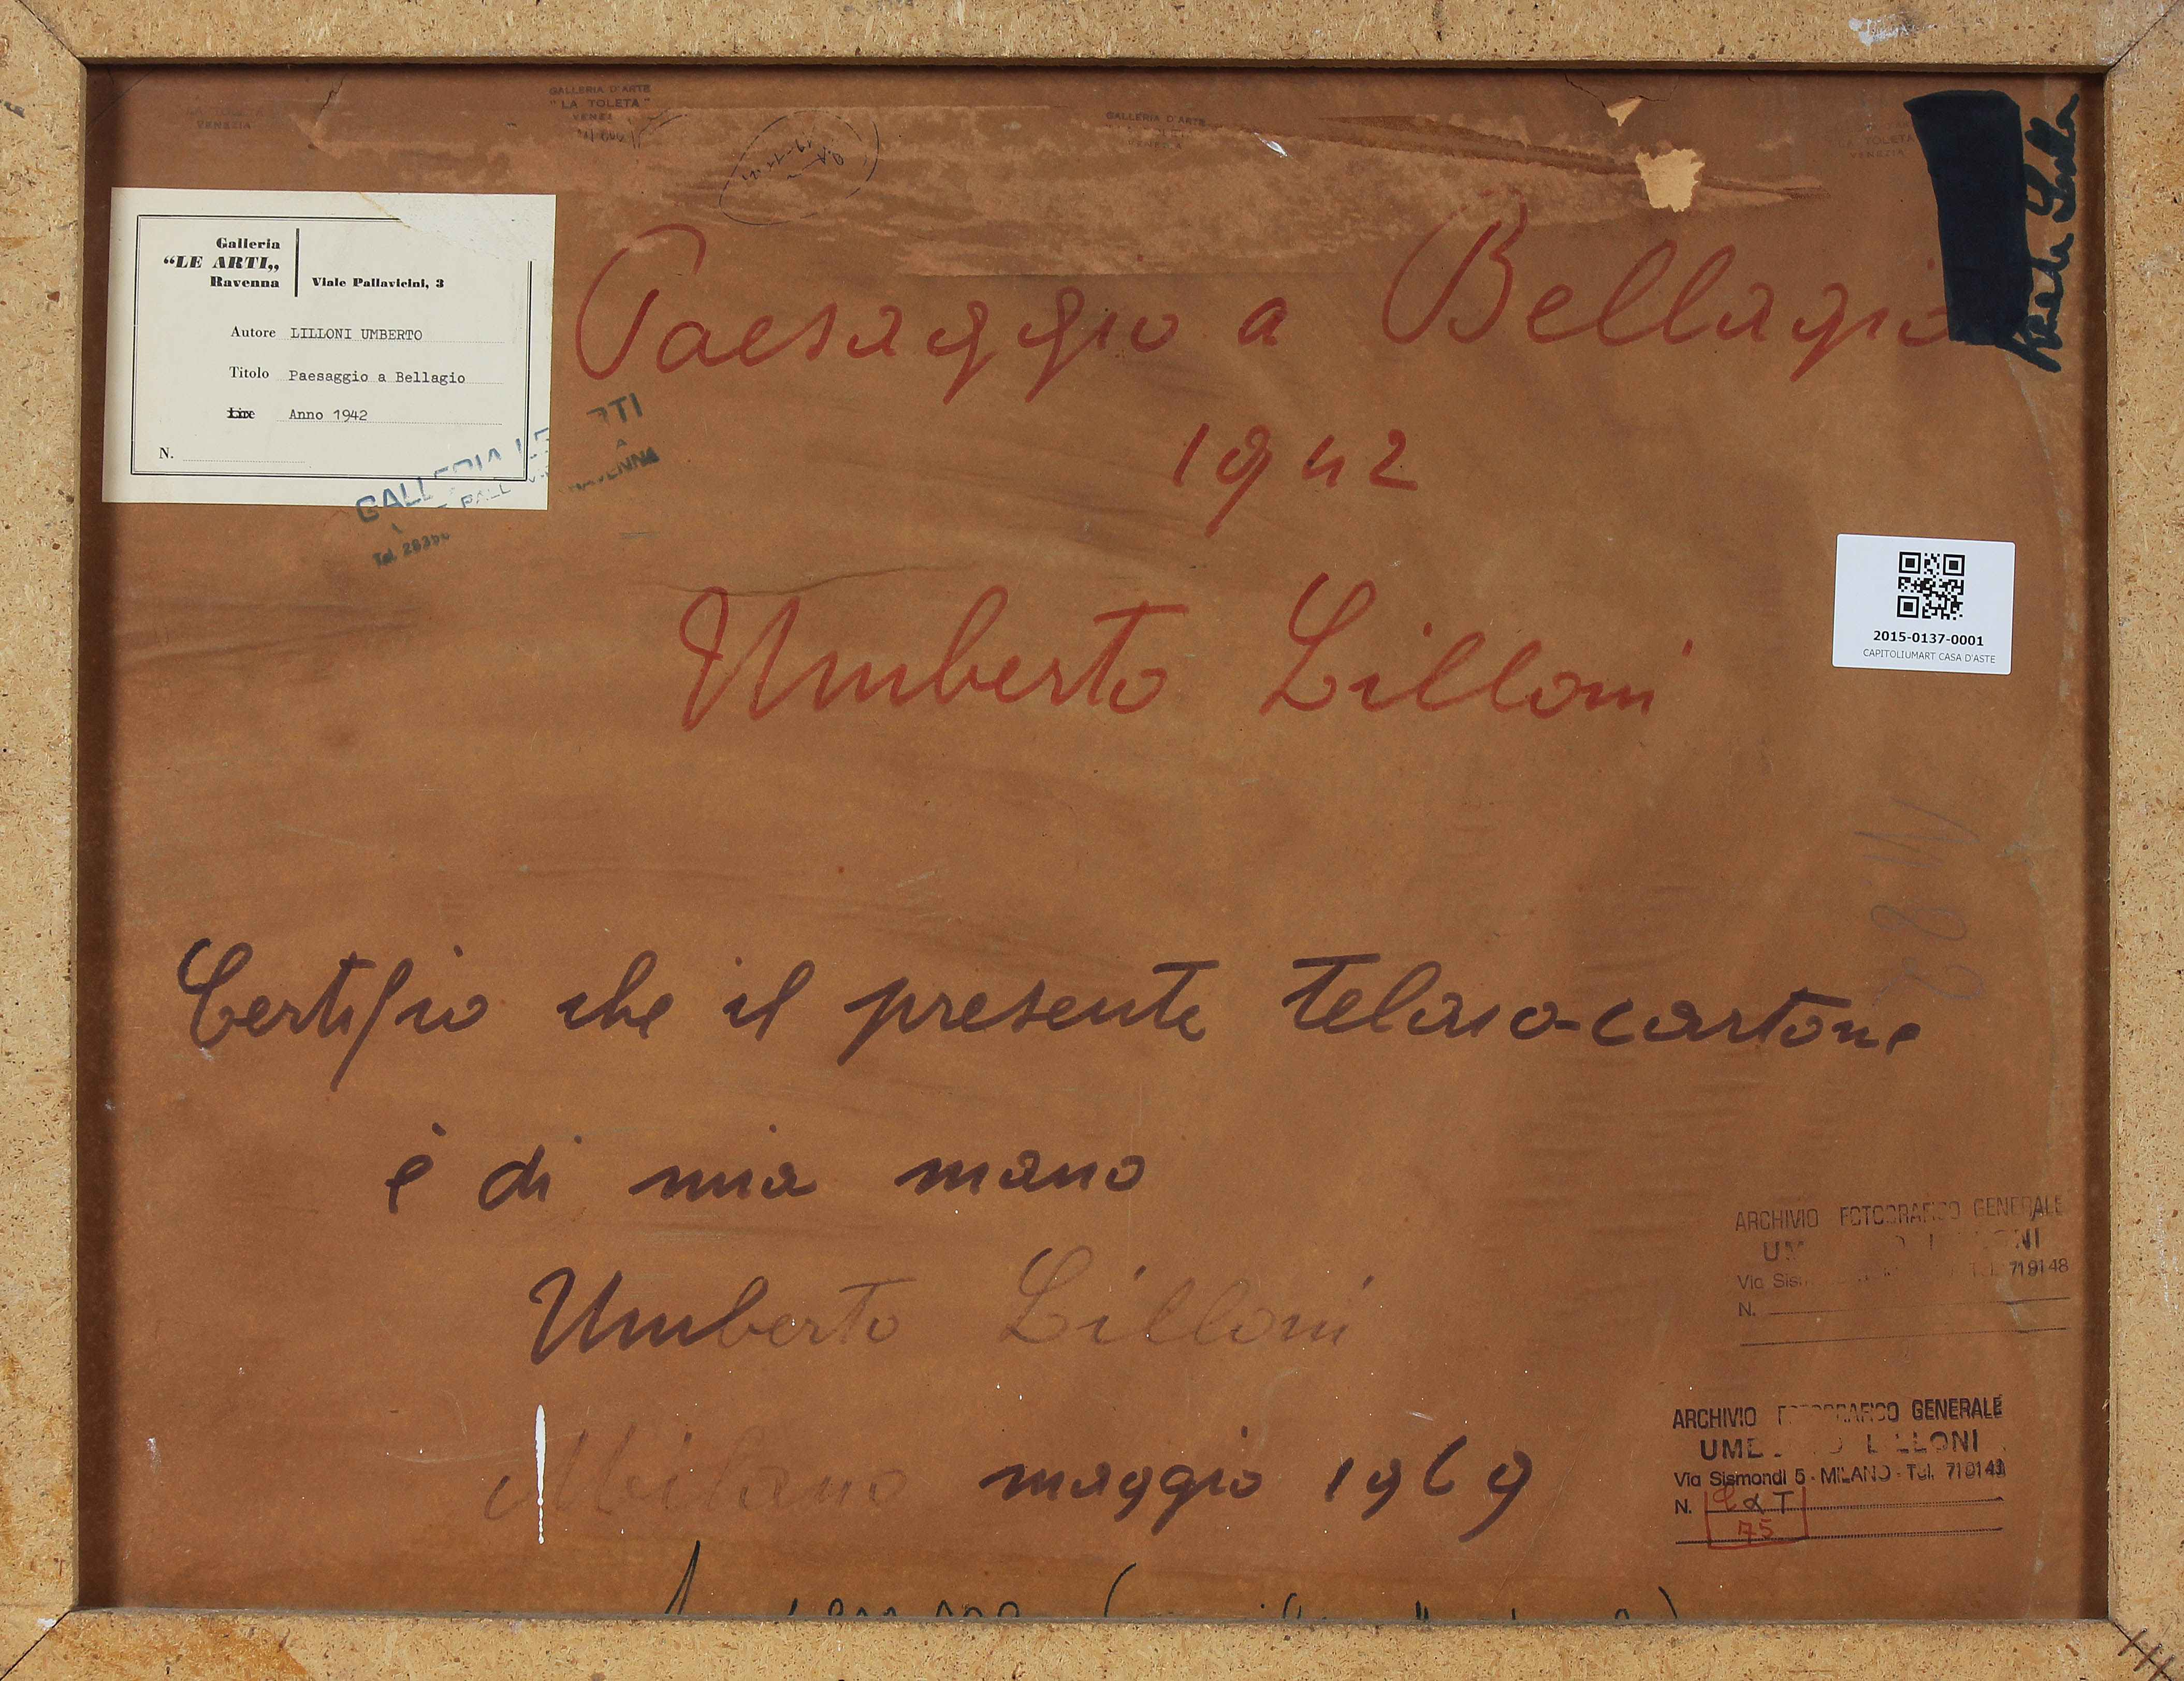 VENEZIA
GALLERIA D'ARTE
"LA TOLETA"
VENEZI
GALLERIA D'ARTE
VENEZIA
LA TOLETA
VENEZIA
Galleria
“LE ARTI„
Ravenna
Viale Pallavicini, 3
Autore LILLONI UMBERTO
Titolo Paesaggio a Bellagio
Lire Anno 1942
N.
Paesaggio a Bellagio
1942
Umberto Lilloni
2015-0137-0001
CAPITOLIUMART CASA D'ASTE
Certifio che il presente telaio-cartone
è di mia mano
Umberto Lilloni
Milano maggio 1969
ARCHIVIO FOTOGRAFICO GENERALE
Via 719148
N.
ARCHIVIO FOTOGRAFICO GENERALE
UMBERTO LILLONI
Via Sismondi 5 - MILANO - Tel. 719148
N.
75